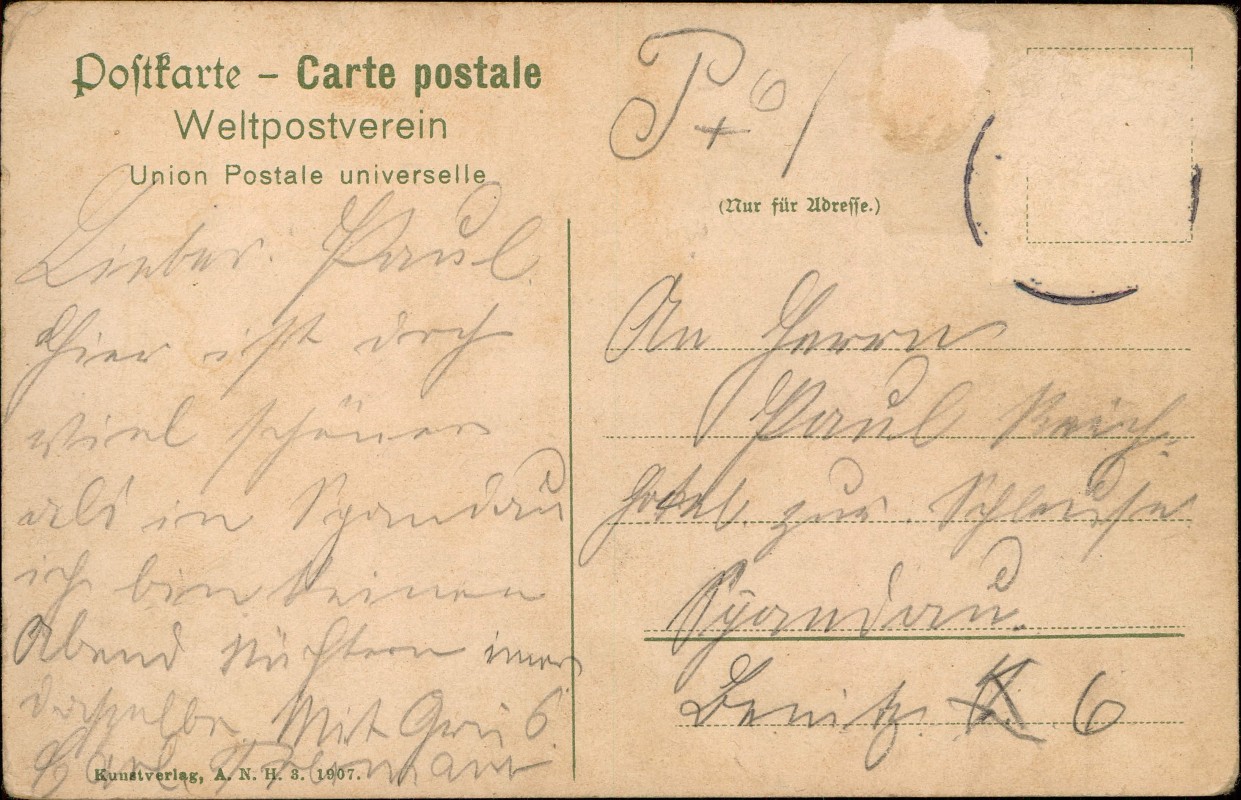 Postkarte – Carte postale
Weltpostverein
Union Postale universelle
P + 6/
(Nur für Adresse.)
Lieber Paul.
Hier ist doch
viel schöner
als in Spandau
ich bin keinen
Abend nüchtern immer
derselbe. Mit Gruß
Carl
Kunstverlag, A. N. H. 3. 1907.
An Herrn
Paul Reich.
Hotel zur Schleuse
Spandau.
6